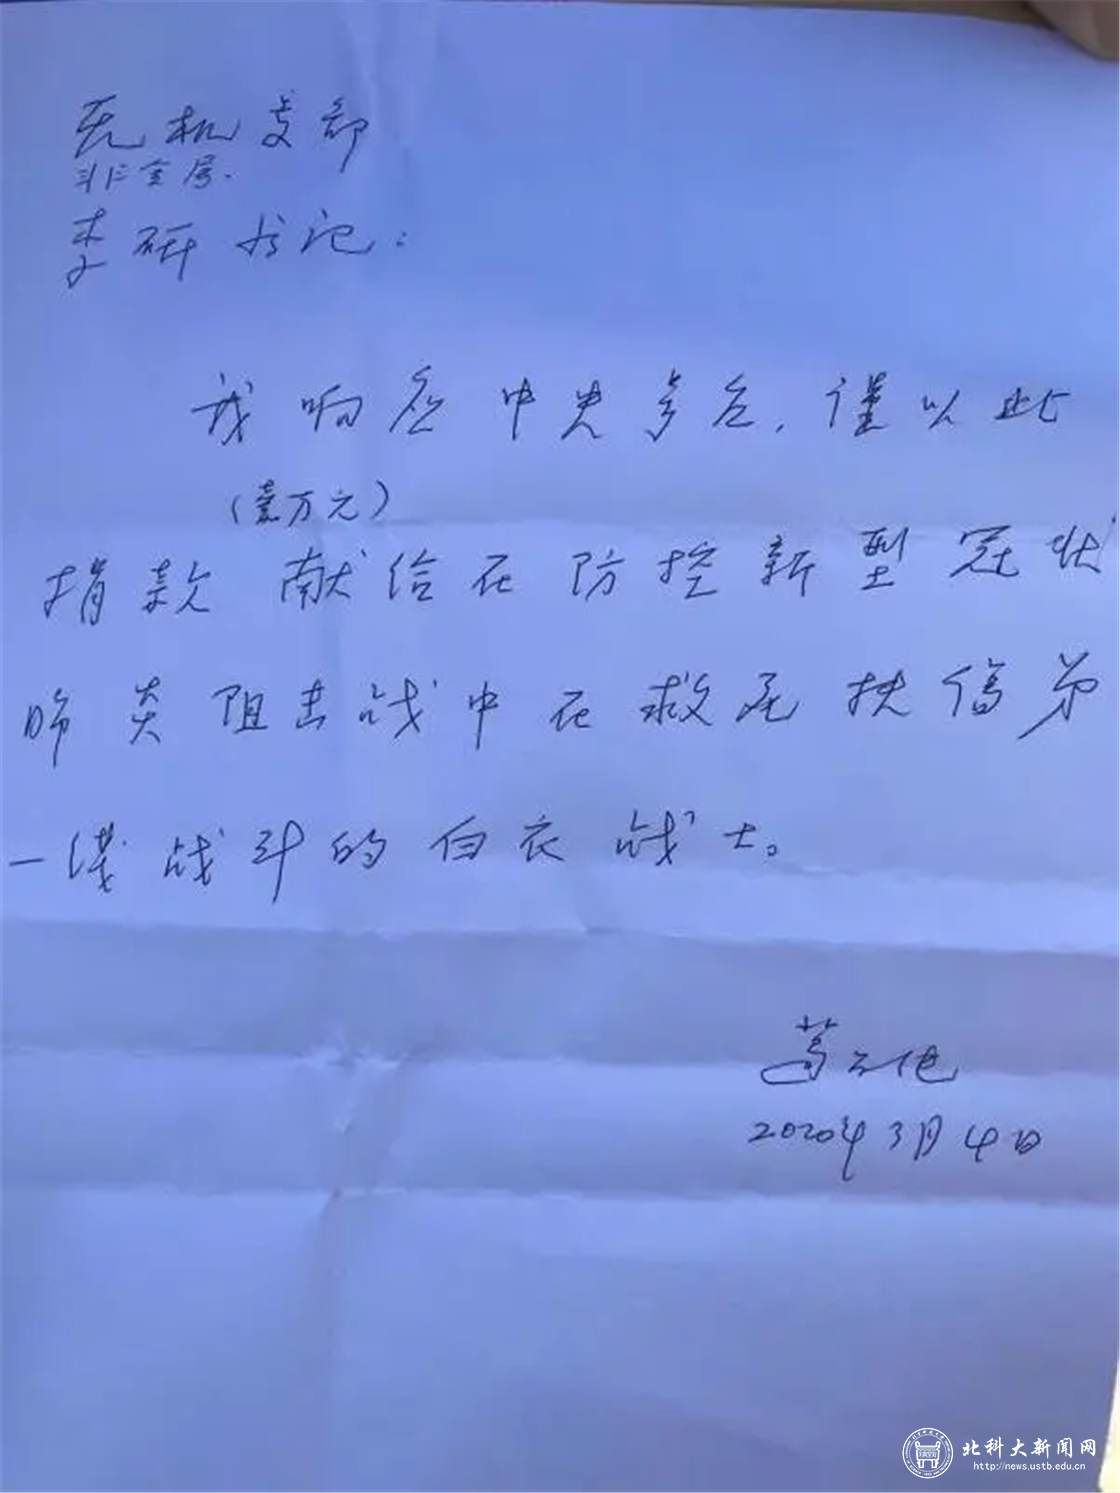 无机支部
非金属.
李研书记：
我响应中央号召，谨以此
（壹万元）
捐款 献给在防控新型冠状
肺炎阻击战中在救死扶伤第
一线战斗的白衣战士。
2020年3月4日
北科大新闻网
http://news.ustb.edu.cn